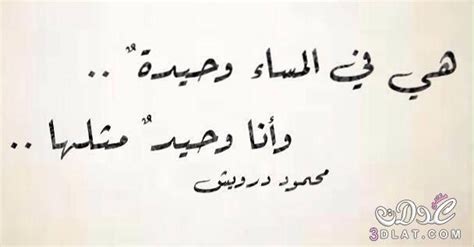 هي في المساء وحيدةٌ ..
وأنا وحيدٌ مثلها ..
محمود درويش
3DLAT.COM